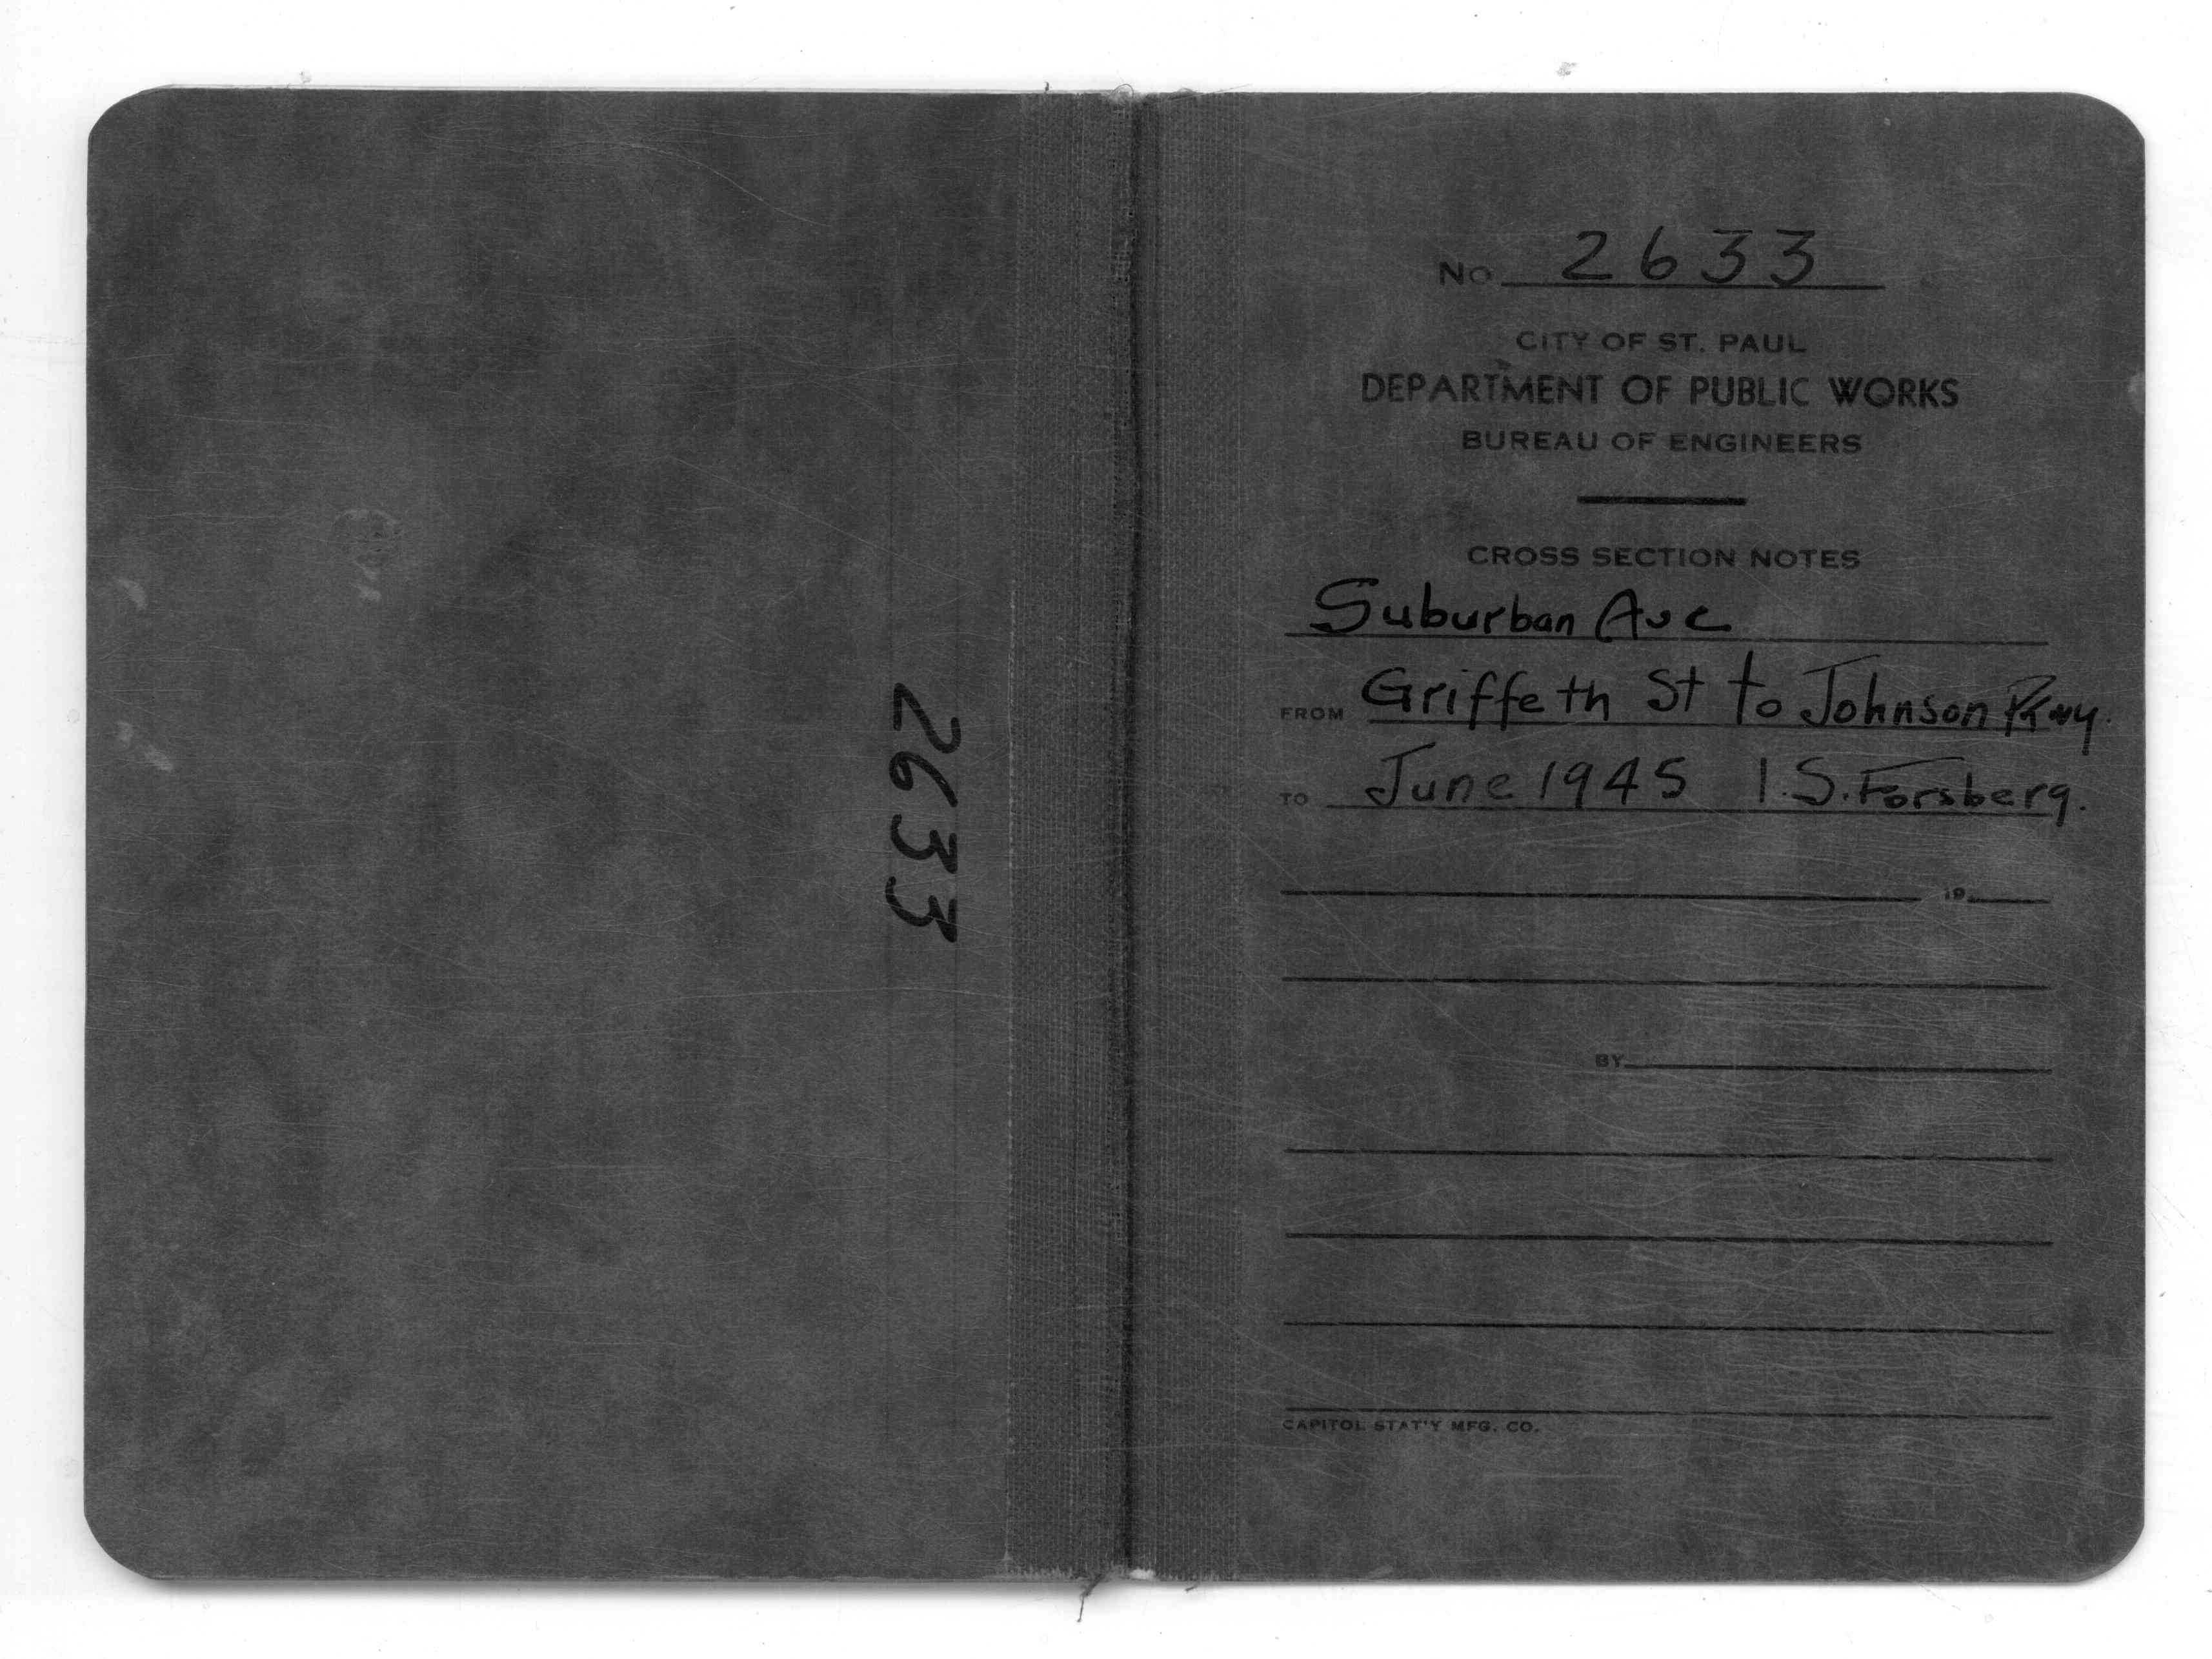 2633
No 2633
CITY OF ST. PAUL
DEPARTMENT OF PUBLIC WORKS
BUREAU OF ENGINEERS
CROSS SECTION NOTES
Suburban Ave
FROM Griffeth St to Johnson Pkwy.
TO June 1945 I.S. Forsberg.
19
BY
CAPITOL STAT'Y MFG. CO.